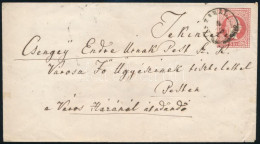 Tekintetes
Csengey Endre Urnak Pest S. K.
Városa Fő Ügyészének tisztelettel
Pesten
a Város Házánál átadandó